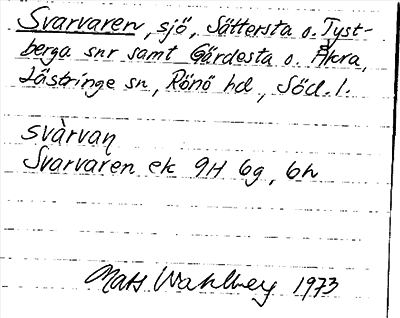 Svarvaren, sjö, Sättersta o. Tyst-
berga snr samt Gärdesta o. Åkra,
Lästringe sn, Rönö hd, Söd. l.
svàrvaɳ
Svarvaren ek 9H 6g, 6h
Mats Wahlberg 1973